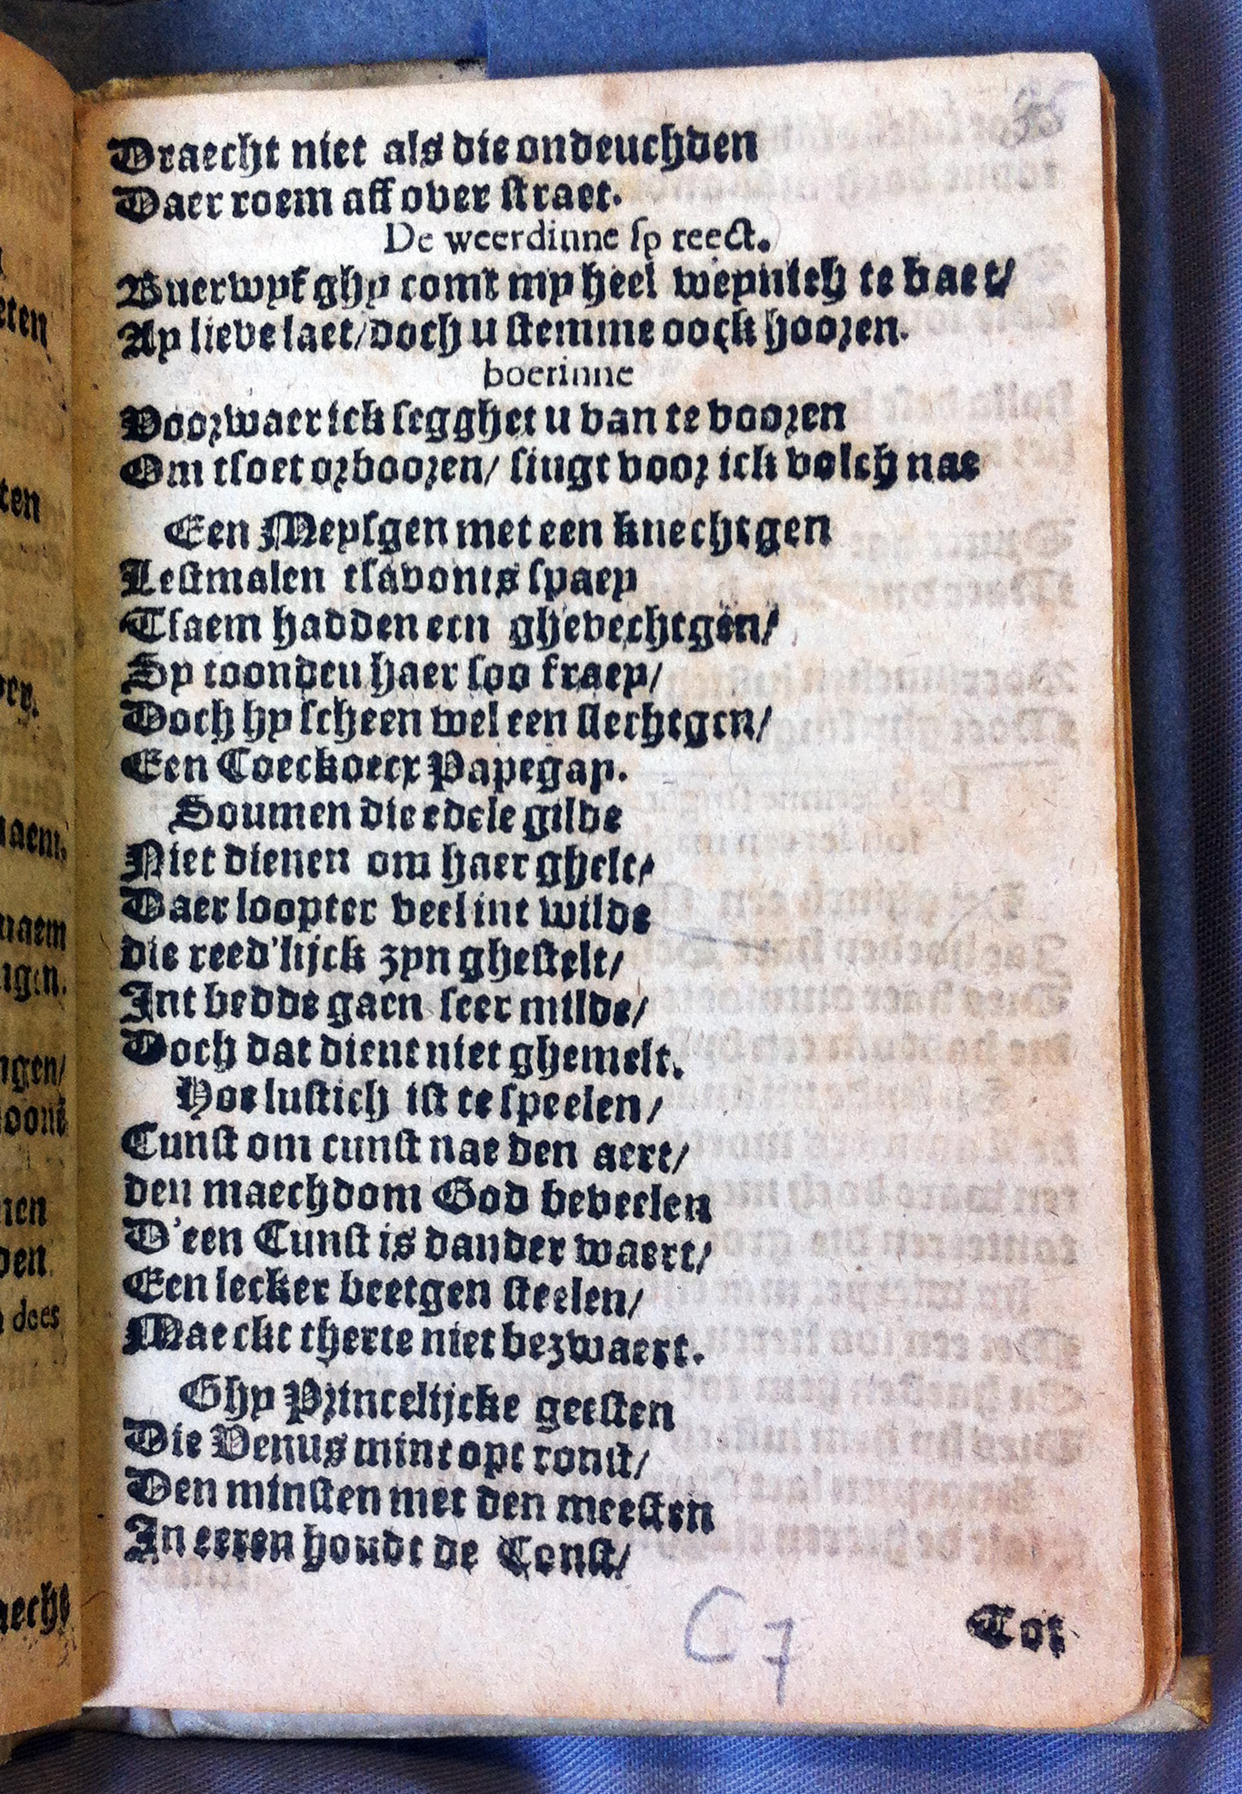 35
Draecht niet als die ondeuchden
Daer roem aff over straet.
De weerdinne spreect.
Buerwyf ghy comt my heel weynich te baet/
Ay lieve laet/doch u stemme oock hooren.
boerinne
Voorwaer ick segghet u van te vooren
Om tsoet orbooren/ singt voor ick volch nae
Een Meysgen met een knechtgen
Lestmalen tsavonts spaey
Tsaem hadden een ghevechtgen/
Sy toonden haer soo fraey/
Doch hy scheen wel een slechtgen/
Een Coeckoecx Papegay.
Soumen die edele gilde
Niet dienen om haer ghelt/
Daer loopter veel int wilde
die reed'lijck zyn ghestelt/
Int bedde gaen seer milde/
Doch dat dient niet ghemelt.
Hoe lustich ist te speelen/
Cunst om cunst nae den aert/
den maechdom God beveelen
D'een Cunst is dander waert/
Een lecker beetgen steelen/
Maeckt therte niet bezwaert.
Ghy Princelijcke geesten
Die Venus mint opt ronst/
Den minsten met den meesten
In eeren houdt de Const/
C7
Tot